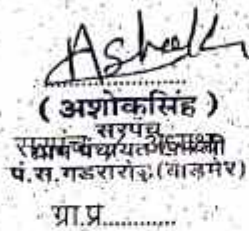 Ashok
( अशोकसिंह )
सरपंच
पं.स.गडरारोड़ (बाडमेर)
ग्रा.प्र............